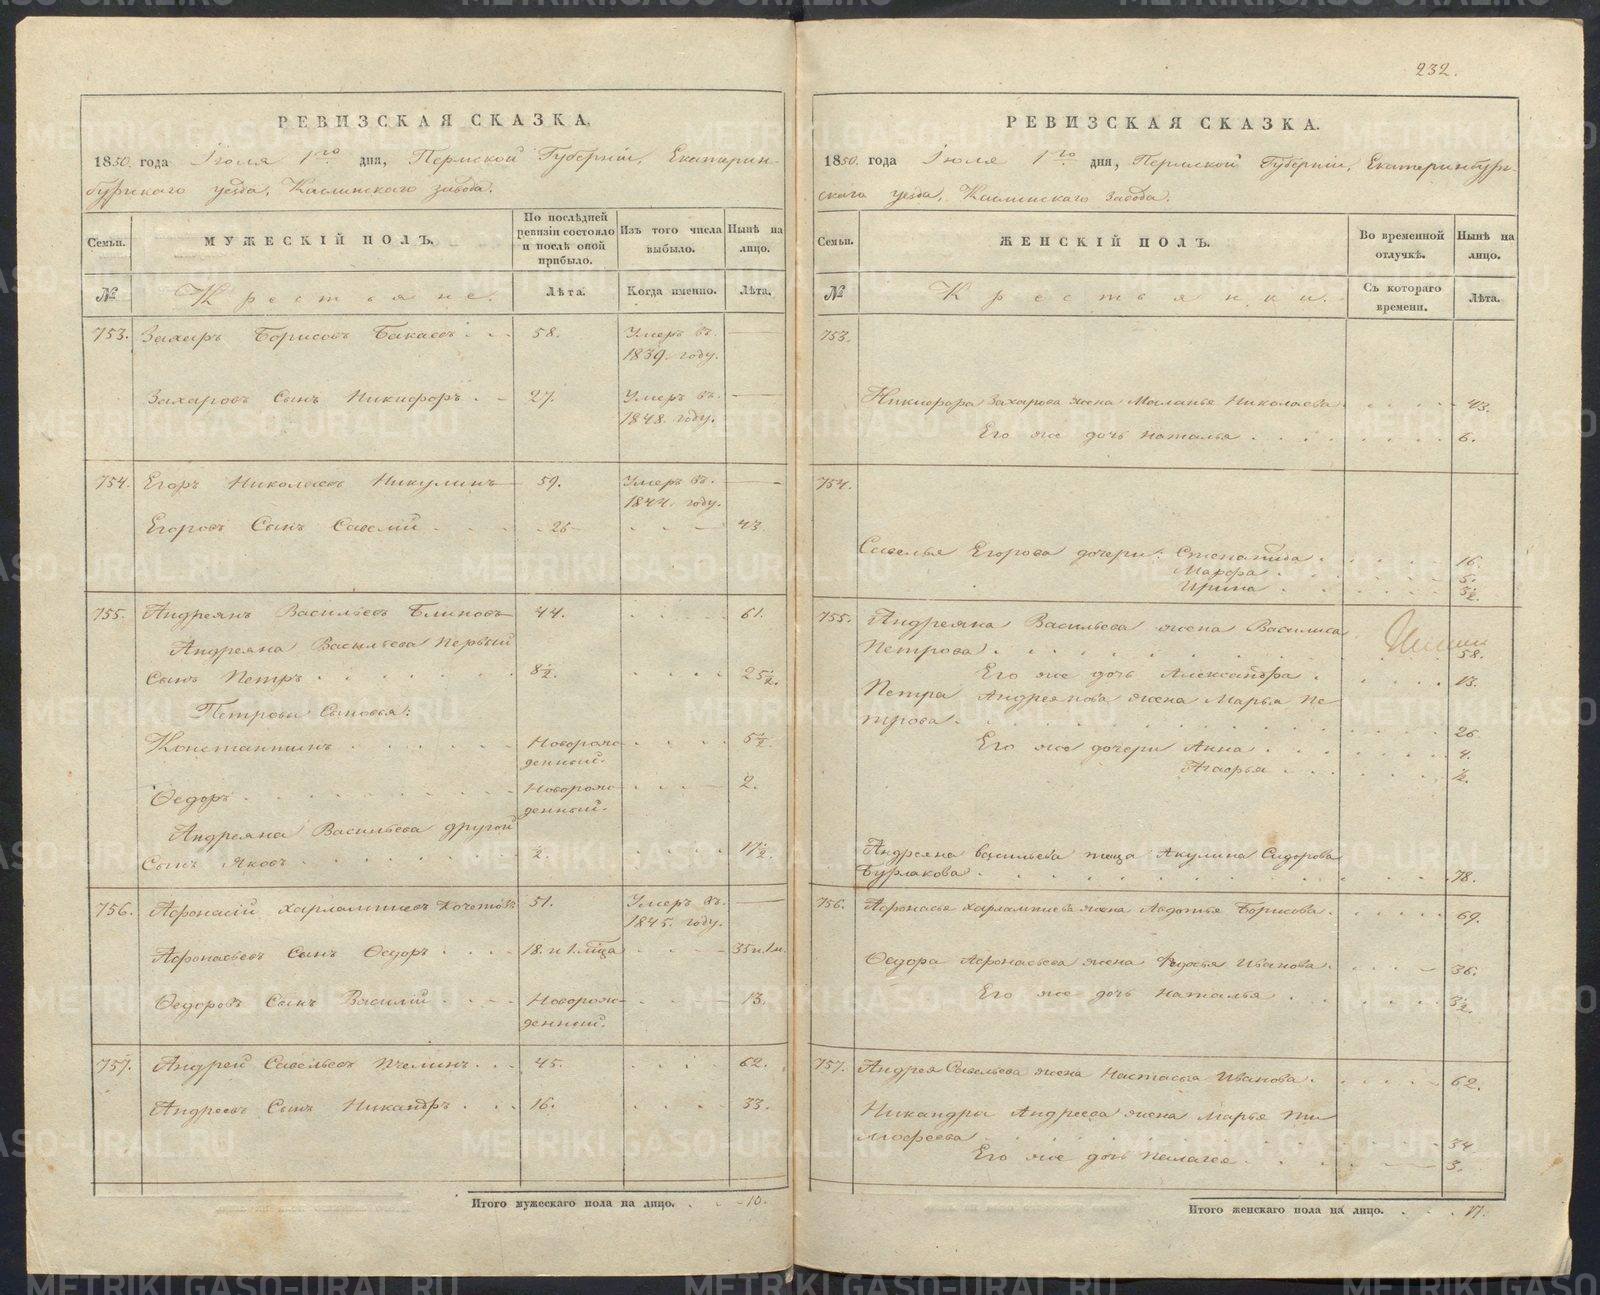 232.
РЕВИЗСКАЯ СКАЗКА.
1850. года Іюля 1го дня, Пермской Губерніи, Екатерин-
бургскаго уезда, Каслинскаго завода.
Семьи.
МУЖЕСКІЙ ПОЛЪ.
По послѣдней ревизіи состояло и послѣ оной прибыло.
Изъ того числа выбыло.
Нынѣ на лицо.
№
Крестьяне.
Лѣта.
Когда именно.
Лѣта.
753. Захаръ Борисовъ 58. Умеръ въ
1839. году.
Захаровъ Сынъ Никифоръ 27. Умеръ въ
1848. году.
754. Егоръ Николаевъ Никулинъ 59. Умеръ въ
1844. году.
Егоровъ Сынъ Савелій 26 43
755. Андреянъ Васильевъ Блиновъ 44. 61.
Андреяна Васильева первый
Сынъ Петръ 8½. 25½.
Петровы Сыновья:
Константинъ Новорож- 5½.
денный.
Ѳедоръ Новорож- 2.
денный.
Андреяна Васильева другой
Сынъ Яковъ ½. 17½.
756. Афонасій Харлампиевъ Кочетовъ 51. Умеръ въ
1845. году.
Афонасьевъ Сынъ Ѳедоръ 18. и 1. мца 35 и 1 м.
Ѳедоровъ Сынъ Василій Новорож- 13.
денный.
757. Андрей Савельевъ Пчелинъ 45. 62.
Андреевъ Сынъ Никандръ 16. 33.
Итого мужескаго пола на лицо. 10.
РЕВИЗСКАЯ СКАЗКА.
1850. года Іюля 1го дня, Пермской Губерніи, Екатеринбург-
скаго уезда, Каслинскаго завода.
Семьи.
ЖЕНСКІЙ ПОЛЪ.
Во временной отлучкѣ.
Нынѣ на лицо.
№
Крестьянки.
Съ котораго времени.
Лѣта.
753.
Никифора Захарова жена Маланья Николаева 43.
Его же дочь Наталья 6.
754.
Савелья Егорова дочери: Степанида 16.
Марфа 5.
Ирина ½.
755. Андреяна Васильева жена Василиса
Петрова 58.
Его же дочь Александра 13.
Петра Андреянова жена Марья Пе-
трова 26
Его же дочери Анна 4.
Агафья ½.
Андреяна Васильева теща Акулина Сидорова
Бурлакова 78.
756. Афонасья Харлампиева жена Авдотья Борисова 69.
Ѳедора Афонасьева жена Федосья Иванова 36.
Его же дочь Наталья 3½.
757. Андрея Савельева жена Настасья Иванова 62.
Никандры Андреева жена Марья Ти
мофеева 34
Его же дочь Пелагея 3.
Итого женскаго пола на лицо. 17.